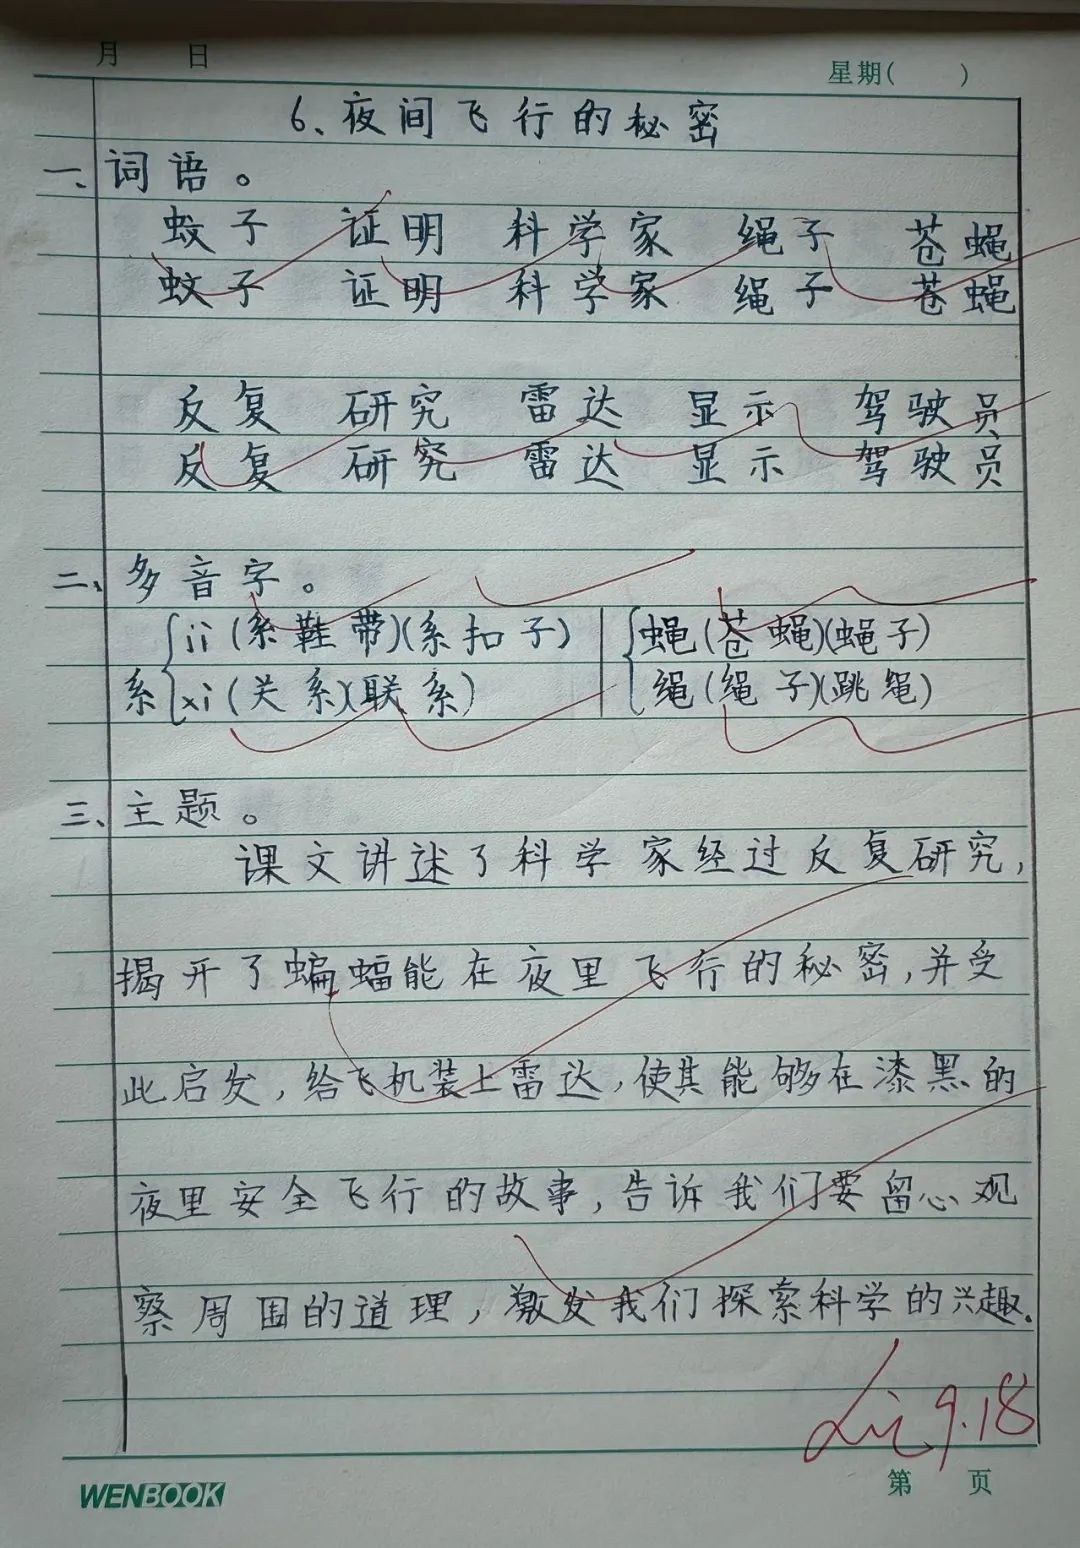 月 日
星期( )
6、夜间飞行的秘密
一、词语。
蚊子 证明 科学家 绳子 苍蝇
蚊子 证明 科学家 绳子 苍蝇
反复 研究 雷达 显示 驾驶员
反复 研究 雷达 显示 驾驶员
二、多音字。
系 jì(系鞋带)(系扣子) 蝇(苍蝇)(蝇子)
xì(关系)(联系) 绳(绳子)(跳绳)
三、主题。
课文讲述了科学家经过反复研究,
揭开了蝙蝠能在夜里飞行的秘密,并受
此启发,给飞机装上雷达,使其能够在漆黑的
夜里安全飞行的故事,告诉我们要留心观
察周围的道理,激发我们探索科学的兴趣.
Li 9.18
第 页
WENBOOK